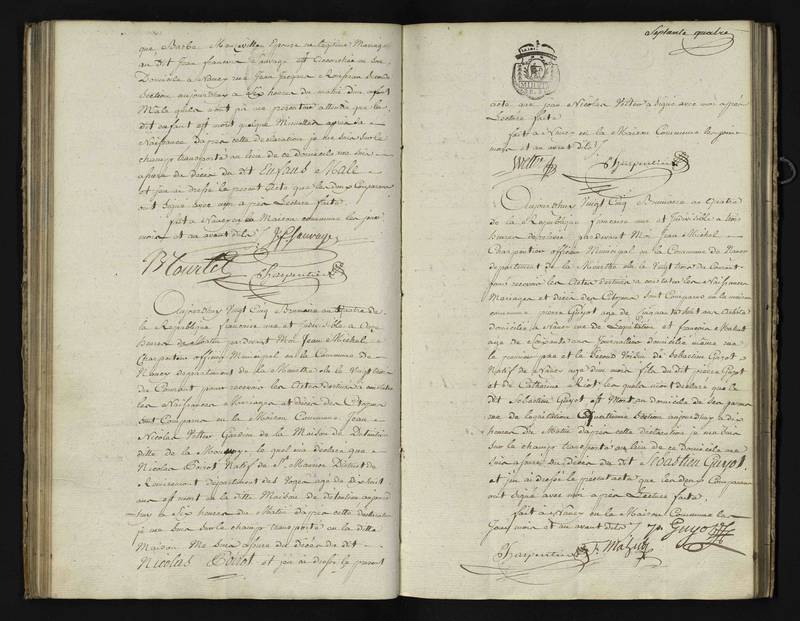 que Barbe Marcville Epouse en legitime Mariage
au dit Jean francois Sauvage est accouchée en son
Domicile a Nancy rue Jean Jacques Rousseau
Section aujourdhuy a Six heures du matin d'un enfant
Male qu'ils n'ont pu me presenter attendu que le
dit enfant est mort quelque Minuttes après sa
Naissance d'après cette declaration je me suis sur le
champ transporté au lieu de ce domicile me suis
assuré du décès du dit Enfant Male
et j'en ai dressé le present acte que les deux Comparans
ont signé avec moi après Lecture faite
fait a Nancy en la Maison commune les jour
mois et an avant dits / JF Sauvage
B Tourtel Charpentier
Aujourdhuy Vingt Cinq Brumaire an Quatre de
la Republique francoise une et Indivisible a Onze
heures du Matin par devant Moi Jean Michel
Charpentier officier Municipal en la Commune de
Nancy departement de la Meurthe élu le Vingt trois
du Courant pour recevoir les Actes destinés a constater
les Naissances Mariages et décès des Citoyens
Sont Comparu en la Maison Commune Jean
Nicolas Vetter Gardien de la Maison de Detention
ditte de la le quel m'a declaré que
Nicolas Poirot Natif de St. Maurice District de
Remiremont departement des Vosges agé de dix huit
ans est mort en la ditte Maison de detention aujourd
huy a Six heures du Matin d'après cette declaration
je me suis sur le champ transporté en la ditte
Maison Me suis assuré du Décès du dit
Nicolas Poirot et j'en ai dressé le present
Septante quatre
acte que jean Nicolas Vetter a signé avec moi après
Lecture faite
fait a Nancy en la Maison Commune les jour
mois et an avant dits /
Charpentier
Aujourdhuy Vingt Cinq Brumaire an Quatre
de la Republique francoise une et Indivisible a trois
heures de relevée par devant Moi Jean Michel
Charpentier officier Municipal en la Commune de Nancy
departement de la Meurthe élu le Vingt trois du Courant
pour recevoir les Actes destinés a constater les Naissances
Mariages et décès des Citoyens Sont Comparus en la maison
commune pierre Guyot agé de ans Artiste
domicilié a Nancy rue de Legislation et francois
agé de Soixante ans Journalier domicilié même rue
le premier pere et le Second Voisin de Sebastien Guyot
Natif de Nancy agé d'un mois fils du dit pierre Guyot
et de Catherine les quels m'ont declaré que le
dit Sebastien Guyot est Mort au domicile de ses pere et mere
rue de legislation Quatrieme Section aujourdhuy a dix
heures du Matin d'après cette declaration je me suis
sur le champ transporté au lieu de ce domicile me
suis assuré du Décès du dit Sébastien Guyot
et j'en ai dressé le present acte que les deux Comparans
ont signé avec moi après Lecture faite
fait a Nancy en la Maison Commune les
Jour mois et an avant dits / Guyot
Charpentier